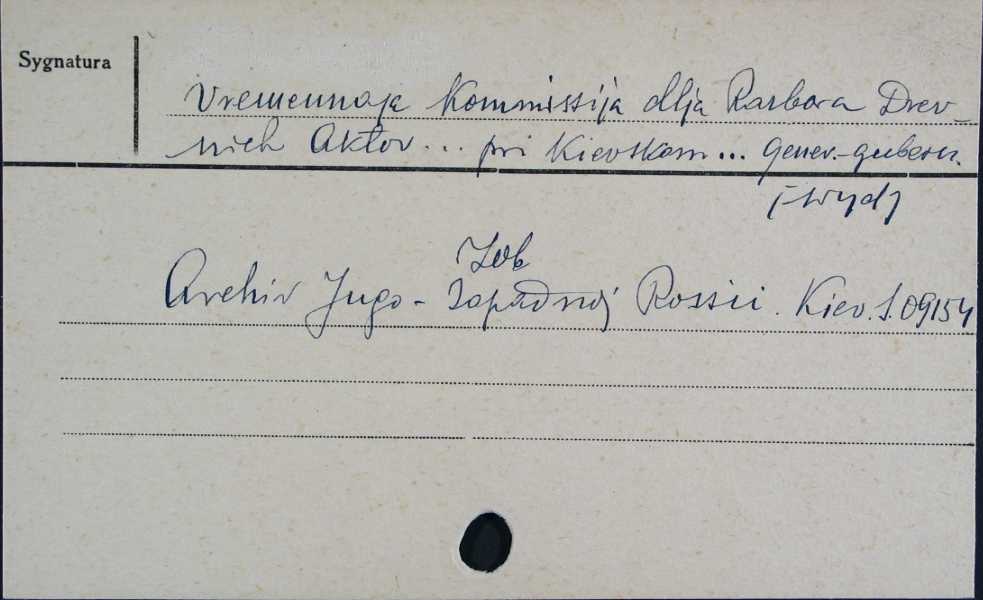 Sygnatura
Vremennaja Kommissija dlja Razbora Drev-
nich Aktov... pri Kievskom... Gener.-gubern.
[wyd]
Zob
Archiv Jugo-Zapadnoj Rossii. Kiev. S.09154